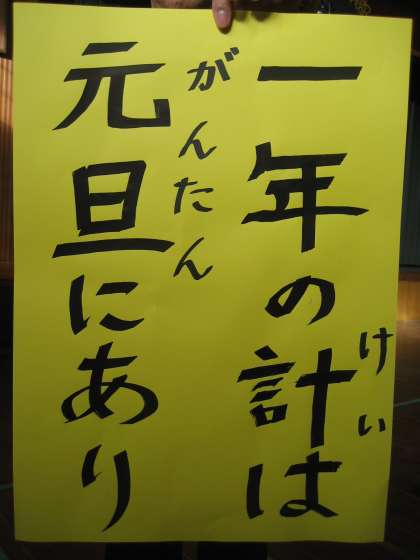 一年の計は
けい
がんたん
元旦にあり